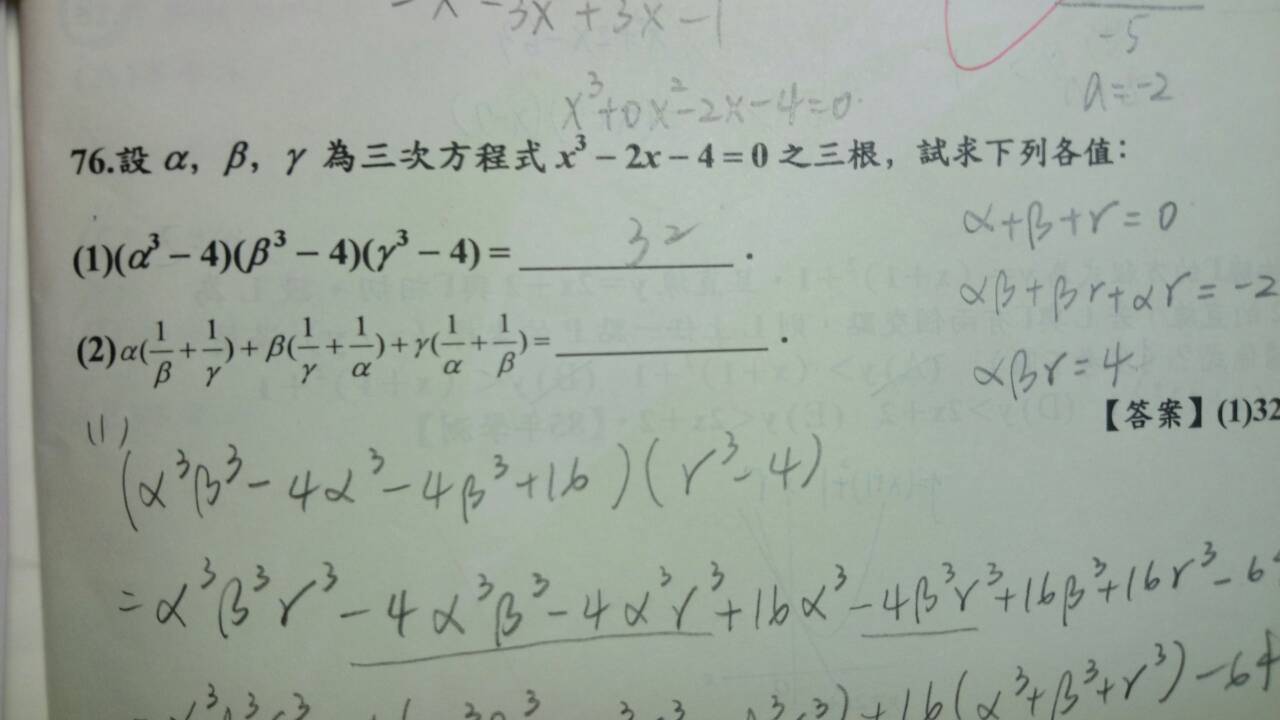 -3x + 3x - 1
-5
a = -2
x³+0x²-2x-4=0
76.設 α, β, γ 為三次方程式 x³ − 2x − 4 = 0 之三根，試求下列各值：
α+β+r=0
(1)(α³ − 4)(β³ − 4)(γ³ − 4) = 32 .
αβ+βr+αr=-2
(2)α(1/β + 1/γ) + β(1/γ + 1/α) + γ(1/α + 1/β) = .
αβr=4
【答案】(1)32
(1)
(α³β³-4α³-4β³+16)(r³-4)
=α³β³r³-4α³β³-4α³r³+16α³-4β³r³+16β³+16r³-64
+16(α³+β³+r³)-64